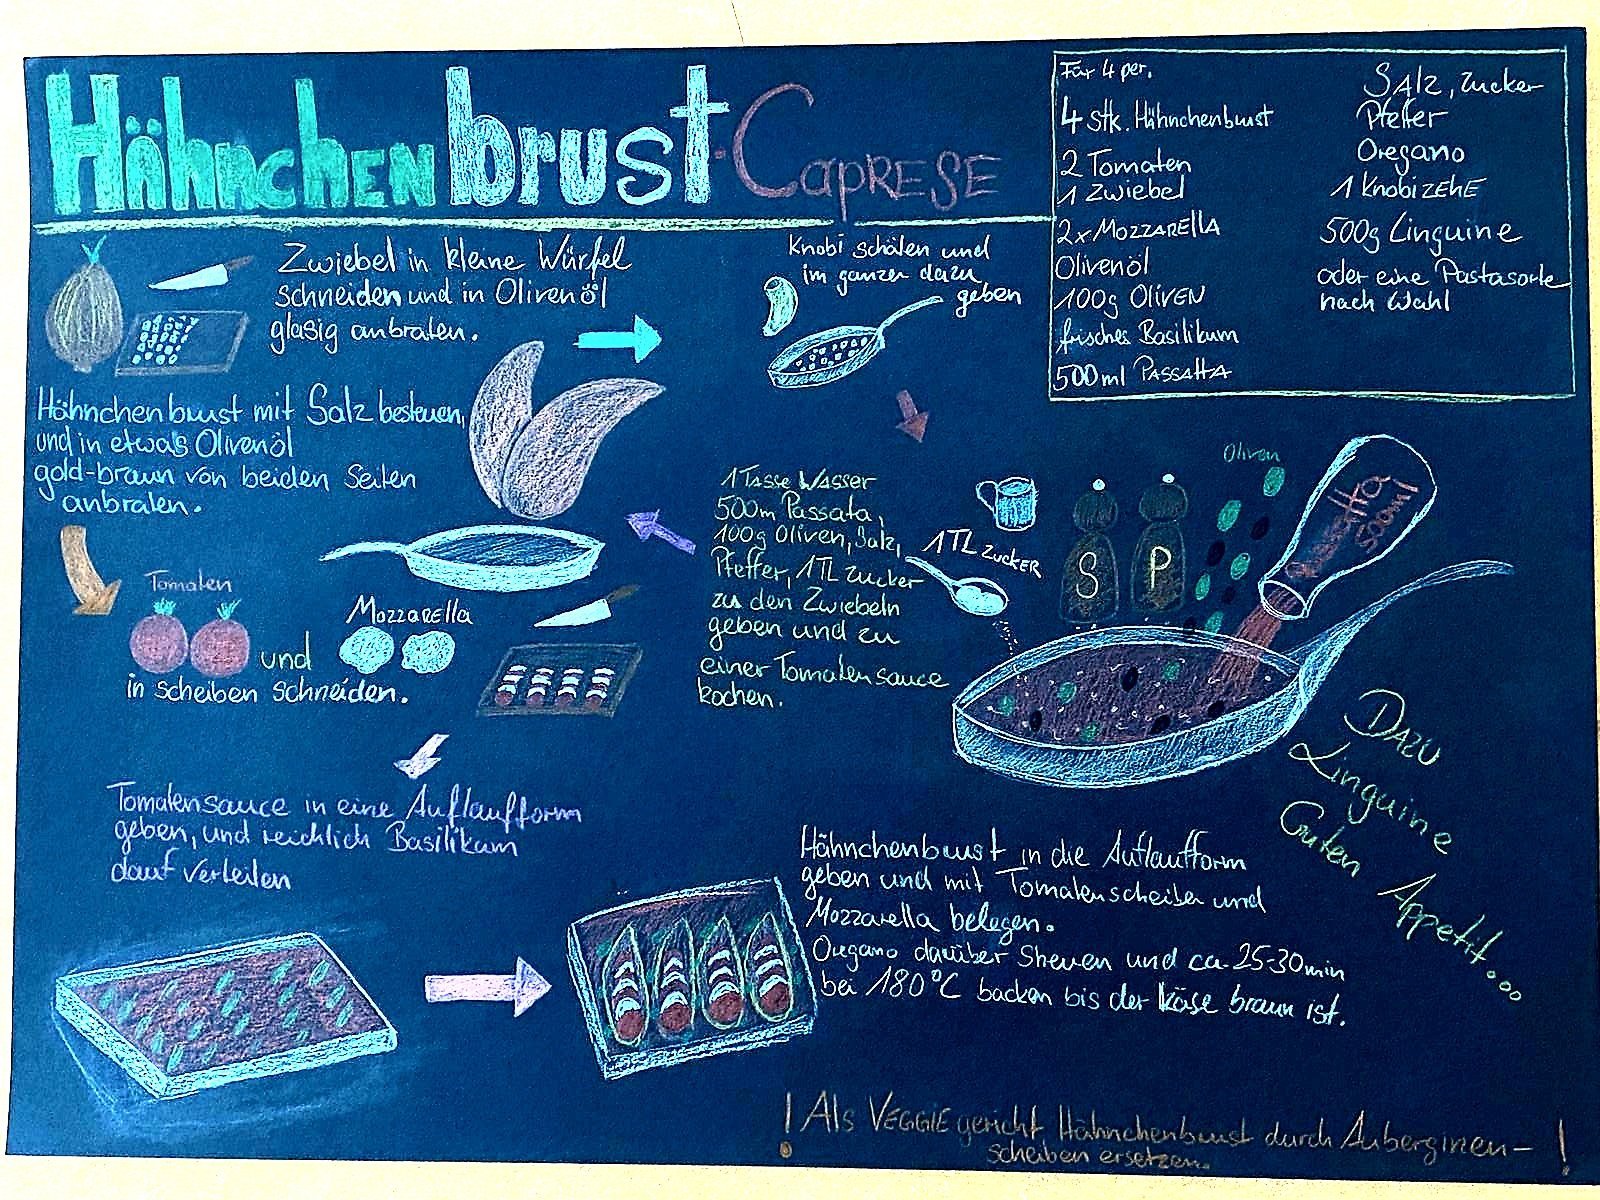 Hähnchenbrust-Caprese
Für 4 per.
4 Stk. Hähnchenbrust
2 Tomaten
1 Zwiebel
2x Mozzarella
Olivenöl
100g Oliven
frisches Basilikum
500ml Passatta
Salz, Zucker
Pfeffer
Oregano
1 Knobizehe
500g Linguine
oder eine Pastasorte
nach Wahl
Zwiebel in kleine Würfel
schneiden und in Olivenöl
glasig anbraten.
Knobi schälen und
im ganzen dazu
geben
1 Tasse Wasser
500m Passata,
100g Oliven, Salz,
Pfeffer, 1TL Zucker
zu den Zwiebeln
geben und zu
einer Tomatensauce
kochen.
1TL Zucker
S
P
Oliven
Passatta
500ml
Hähnchenbrust mit Salz besteuen,
und in etwas Olivenöl
gold-braun von beiden Seiten
anbraten.
Tomaten
und
Mozzarella
in scheiben schneiden.
Tomatensauce in eine Auflaufform
geben, und reichlich Basilikum
dauf verteilen
Hähnchenbrust in die Auflaufform
geben und mit Tomatenscheiben und
Mozzarella belegen.
Oregano darüber Streuen und ca. 25-30min
bei 180°C backen bis der Käse braun ist.
Dazu
Linguine
Guten Appetit...
! Als Veggie gericht Hähnchenbrust durch Auberginen- !
scheiben ersetzen.